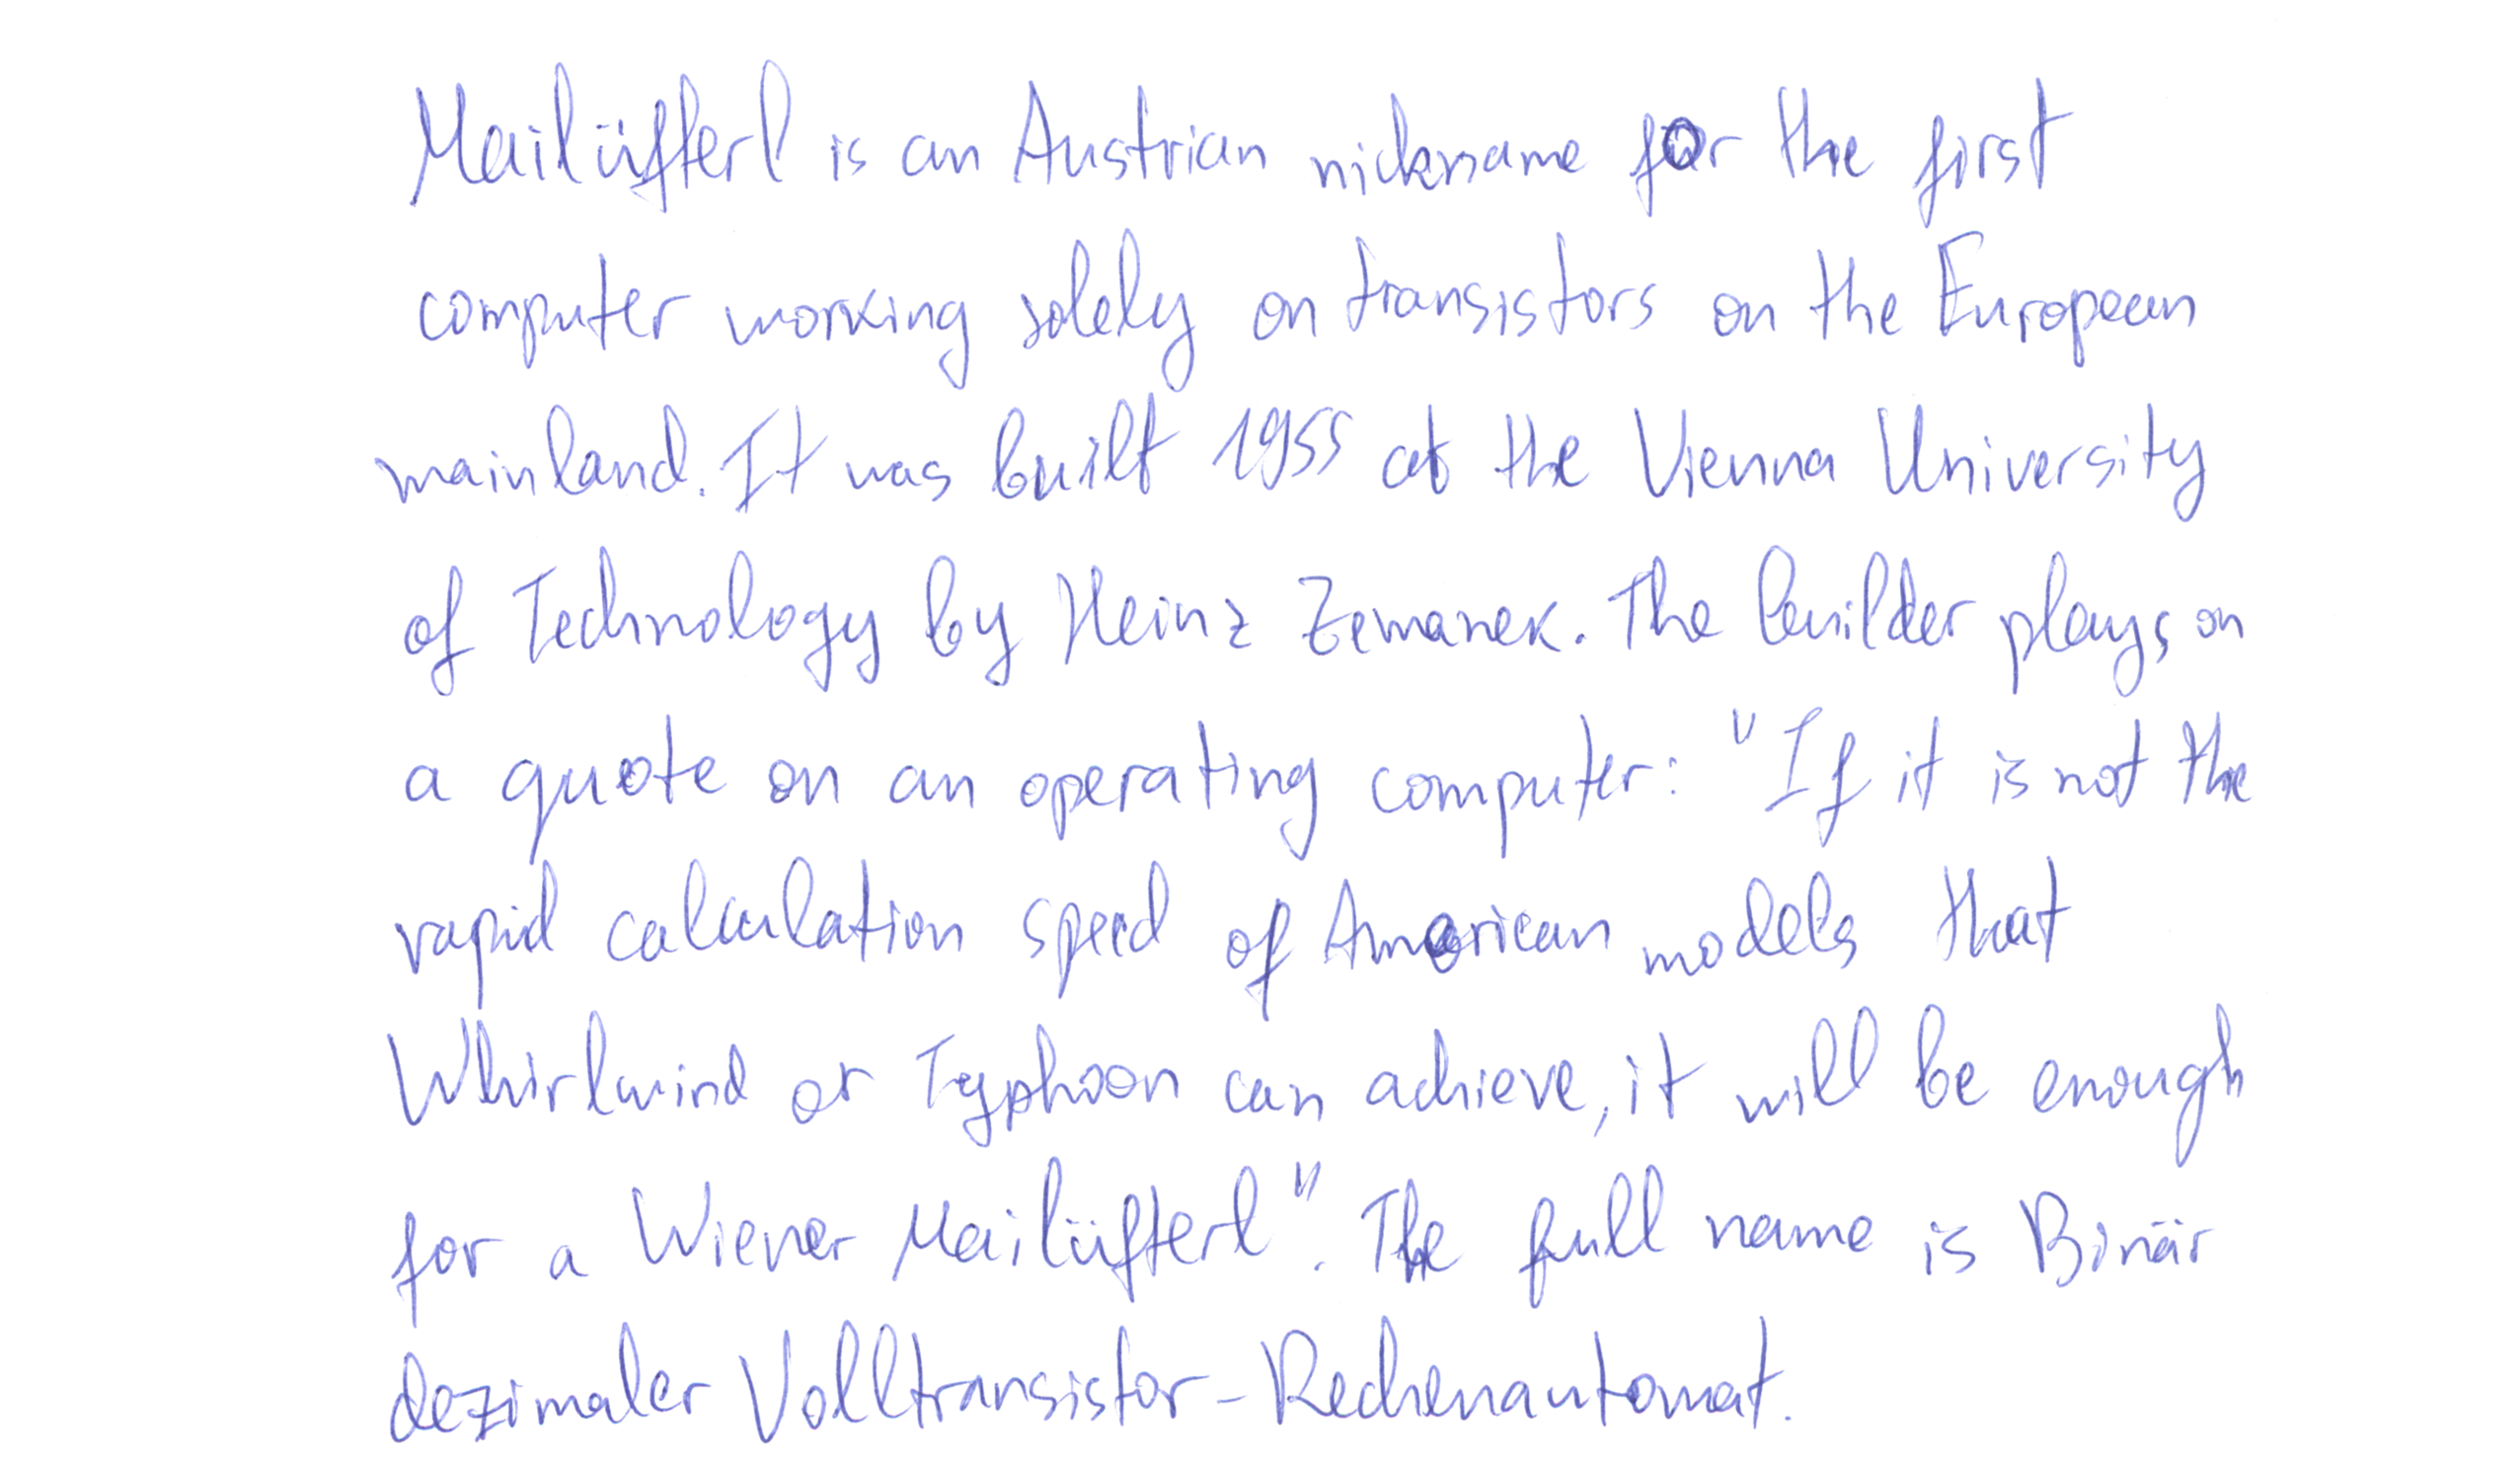 Mailüfterl is an Austrian nickname for the first
computer working solely on transistors on the European
mainland. It was built 1955 at the Vienna University
of Technology by Heinz Zemanek. The builder plays on
a quote on an operating computer: "If it is not the
rapid calculation speed of American models that
Whirlwind or Typhoon can achieve, it will be enough
for a Wiener Mailüfterl". The full name is Binär
dezimaler Volltransistor-Rechenautomat.